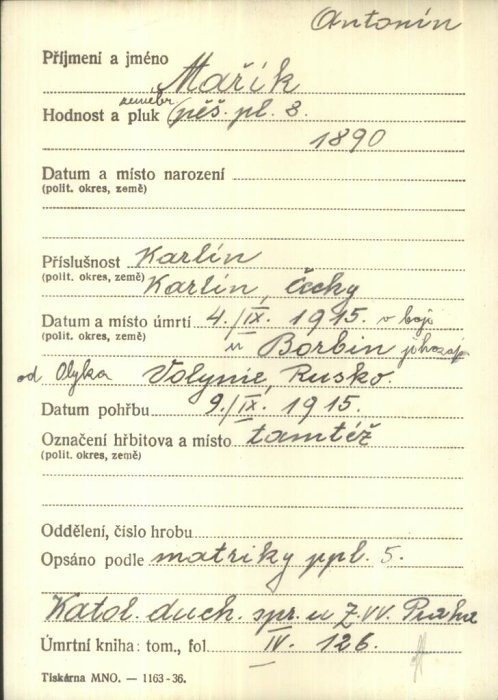 Antonín
Příjmení a jméno Mařík
zeměbr.
Hodnost a pluk pěš. pl. 8.
1890
Datum a místo narození
(polit. okres, země)
Příslušnost Karlín
(polit. okres, země) Karlín, Čechy
Datum a místo úmrtí 4./IX. 1915. v boji
(polit. okres, země) u Borbin jihozáp
od Olyka Volynie, Rusko.
Datum pohřbu 9./IX. 1915.
Označení hřbitova a místo tamtéž
(polit. okres, země)
Oddělení, číslo hrobu
Opsáno podle matriky ppl. 5.
Katol. duch. spr. u Z.VV. Praha
Úmrtní kniha: tom., fol. IV. 126.
Tiskárna MNO. — 1163-36.